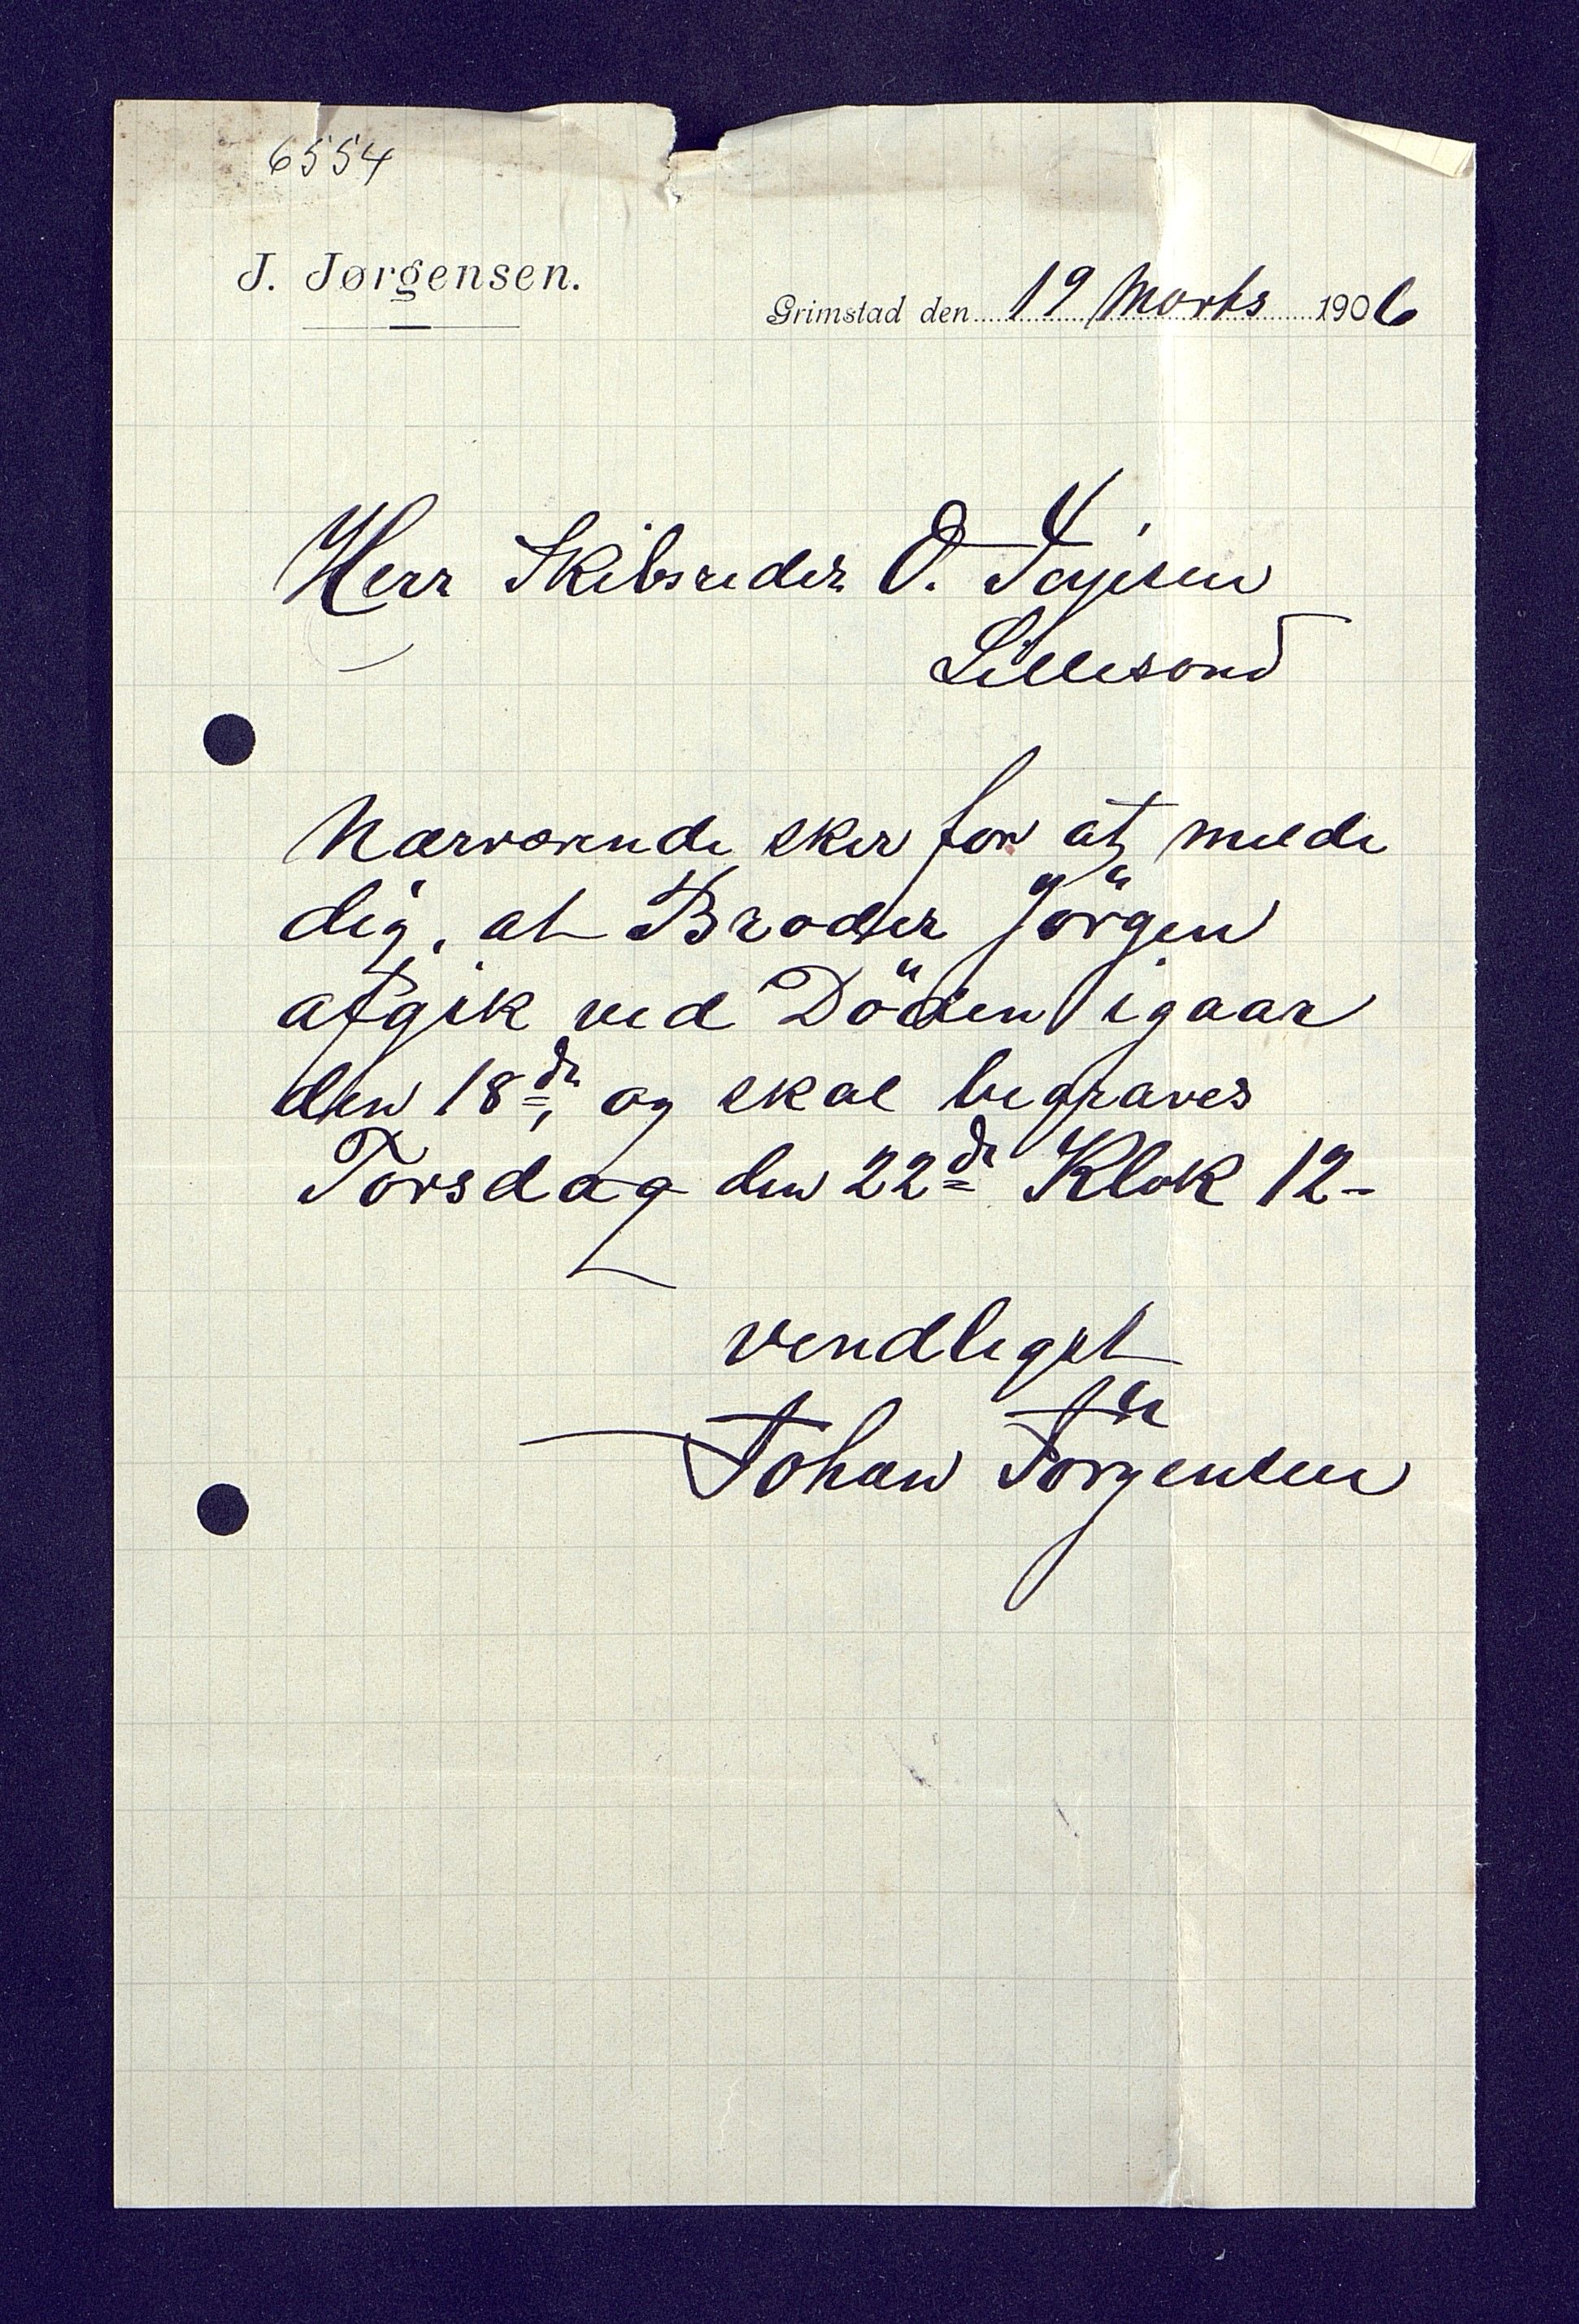 6554
J. Jørgensen.
Grimstad den 19 Marts 1906
Herr Skibsreder O. Tayesen
Lillesand
Nærværende sker for at melde
dig, at Broder Jörgen
afgik ved Döden igaar
den 18de, og skal begraves
Torsdag den 22de Klok 12-
vendligst
Johan Jörgensen